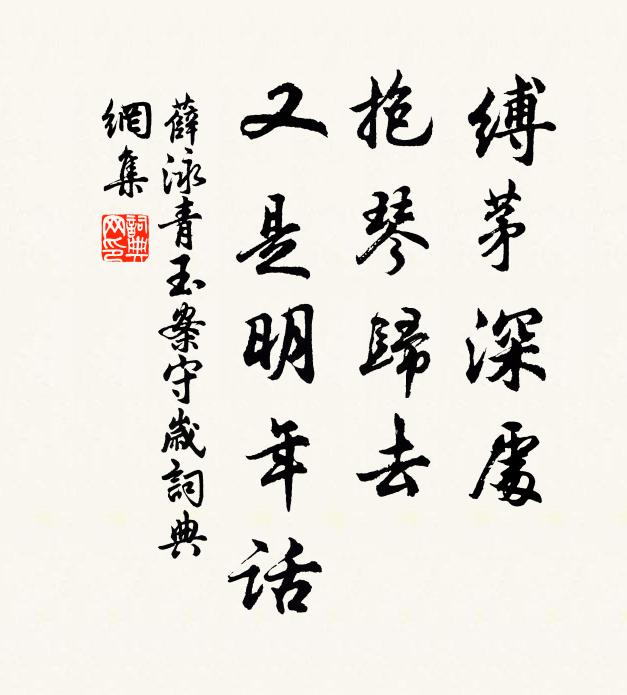 縛茅深處
抱琴歸去
又是明年話
薛泳青玉案守歲詞典
網集
詞典
网印